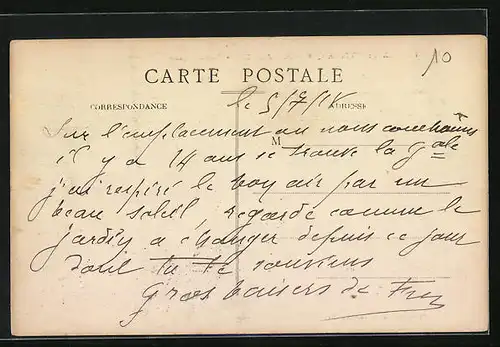 10
CARTE POSTALE
CORRESPONDANCE
ADRESSE
le 5/7/
M
Sur l'emplacement ou nous couchâmes
il y a 14 ans se trouve la
j'ai respiré le bon air par un
beau soleil, regarde comme le
jardin a changer depuis ce jour
dont tu te souviens
Gros baisers de